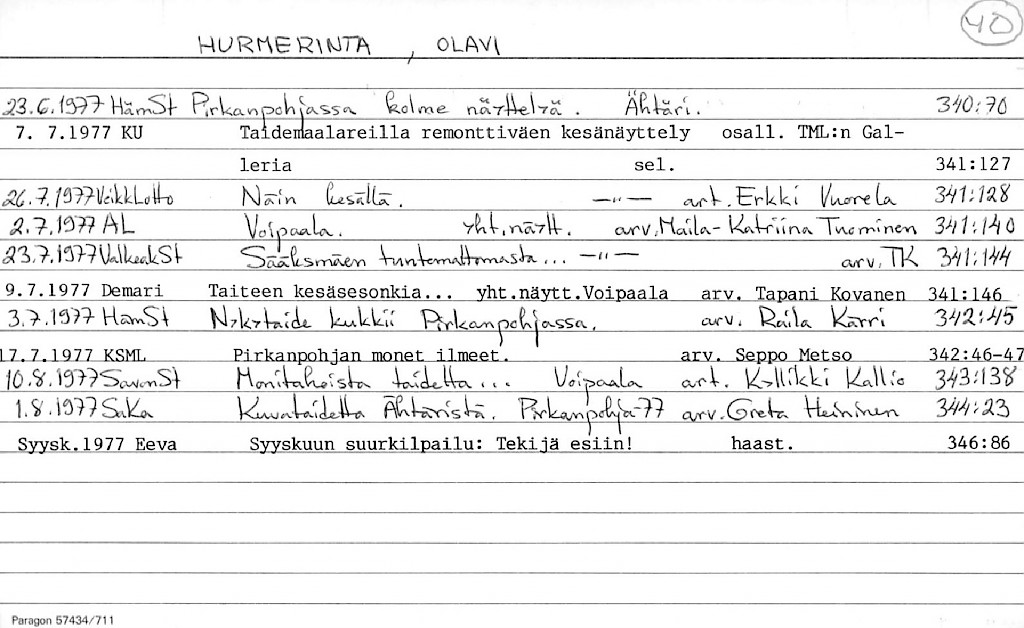 40
HURMERINTA, OLAVI
23.6.1977 HämSt Pirkanpohjassa kolme näyttelyä. Ähtäri. 340:70
7. 7.1977 KU Taidemaalareilla remonttiväen kesänäyttely osall. TML:n Gal-
leria sel. 341:127
26.7.1977 VeikkLotto Näin kesällä. —"— art. Erkki Vuorela 341:128
2.7.1977 AL Voipaala. yht.näytt. arv. Maila-Katriina Tuominen 341:140
23.7.1977 ValkeakSt Sääksmäen tuntemattomasta... —"— arv. TK 341:144
9.7.1977 Demari Taiteen kesäsesonkia... yht.näytt.Voipaala arv. Tapani Kovanen 341:146
3.7.1977 HämSt Nykytaide kukkii Pirkanpohjassa. arv. Raila Karri 342:45
17.7.1977 KSML Pirkanpohjan monet ilmeet. arv. Seppo Metso 342:46-47
10.8.1977 SavonSt Monitahoista taidetta... Voipaala art. Kyllikki Kallio 343:138
1.8.1977 SaKa Kuvataidetta Ähtäristä. Pirkanpohja-77 arv. Greta Heininen 344:23
Syysk.1977 Eeva Syyskuun suurkilpailu: Tekijä esiin! haast. 346:86
Paragon 57434/711